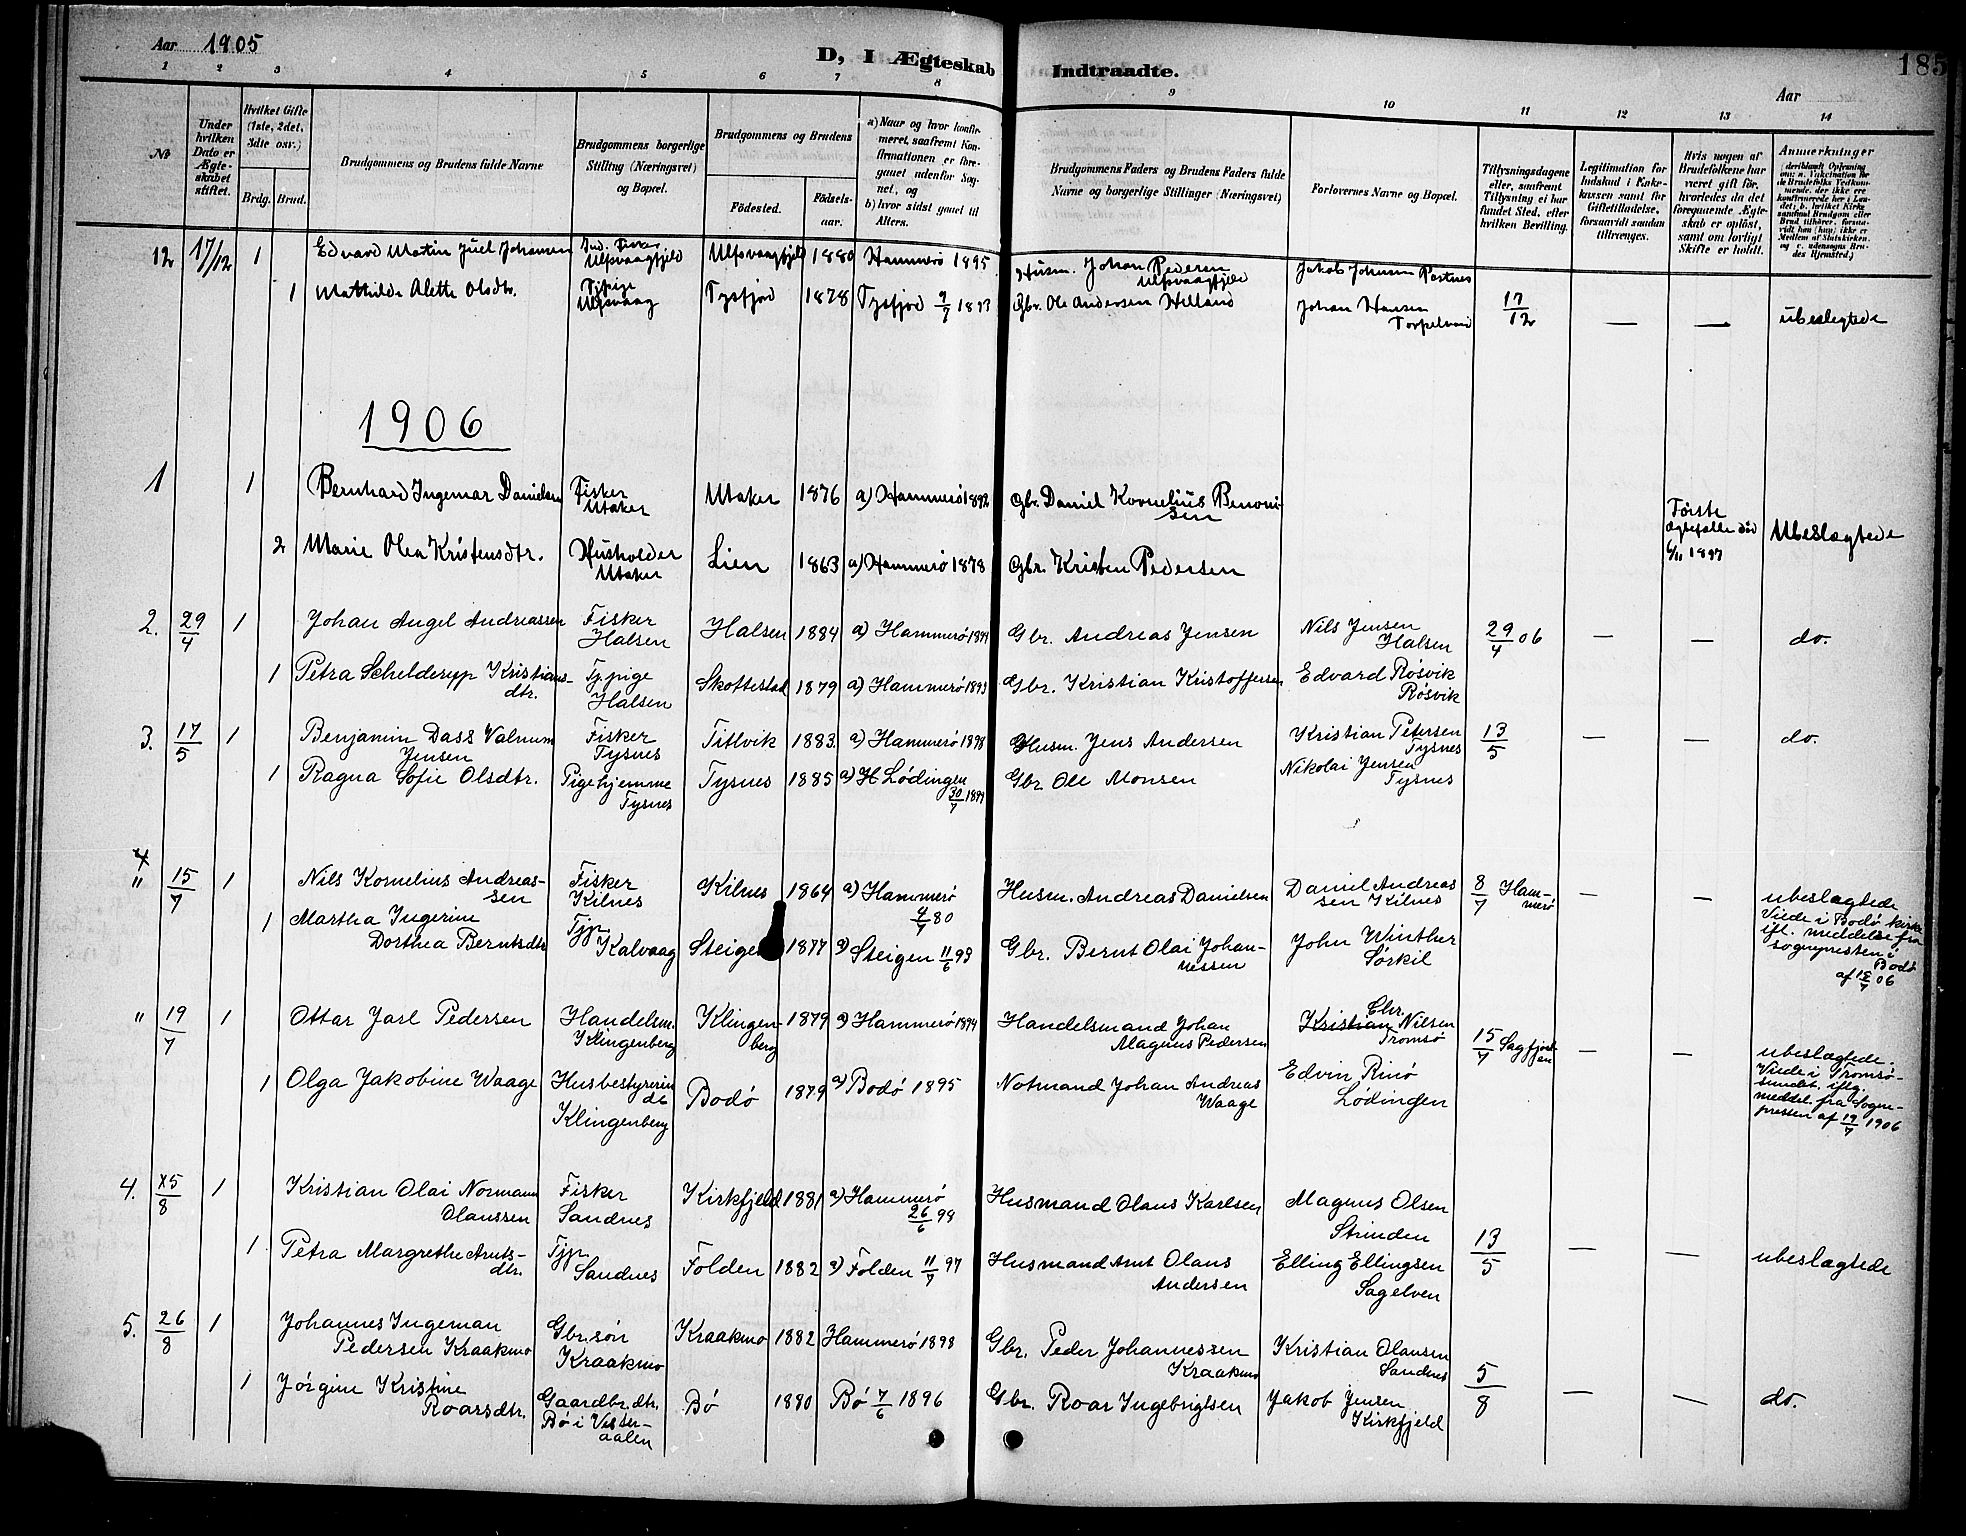 Aar 1905
D, I Ægteskab Indtraadte.
185
Aar
1 2 3 4 5 6 7 8 9 10 11 12 13 14
No
Under hvilken Dato er Ægteskabet stiftet.
Hvilket Gifte (1ste, 2det, 3die osv.)
Brdg. Brud.
Brudgommens og Brudens fulde Navne
Brudgommens borgerlige Stilling (Næringsvei) og Bopæl.
Brudgommens og Brudens
Fødested. Fødselsaar.
a) Naar og hvor konfirmeret, saafremt Konfirmationen er foregaaet udenfor Sognet, og
b) hvor sidst gaaet til Alters.
Brudgommens Faders og Brudens Faders fulde Navne og borgerlige Stillinger (Næringsvei)
Forlovernes Navne og Bopæl.
Tillysningsdagene eller, saafremt Tillysning ei har fundet Sted, efter hvilken Bevilling.
Legitimation for Indskud i Enkekassen samt for Giftetilladelse, forsaavidt saadan tiltrænges.
Hvis nogen af Brudefolkene har været gift før, hvorledes da det foregaaende Ægteskab er opløst, samt om lovligt Skifte er holdt.
Anmærkninger
12 17/12 1 Edvard Martin Juel Johansen Ind. Fisker Ulfsvaagfjeld Ulfsvaagfjeld 1880 Hammerø 1895 Husm. Johan Pedersen Ulfsvaagfjeld Jakob Johnsen
1 Mathilde Alette Olsdtr. Tjpige Ulfsvaag Tysfjord 1878 Tysfjord 9/7 1893 Gbr. Ole Andersen Helland Johan Hansen 17/12 — — ubeslegtede
1906
1 1 Bernhard Ingemar Danielsen Fisker Utaker Utaker 1876 a) Hammerø 1892 Gbr. Daniel Kornelius Benonisen
2 Marie Olea Kristensdtr. Husholder Utaker Lien 1863 a) Hammerø 1878 Gbr. Kristen Pedersen Første Egtefælle død 6/11 1897 Ubeslægtede
2. 29/4 1 Johan Angel Andreassen Fisker Halsen Halsen 1884 a) Hammerø 1899 Gbr. Andreas Jensen Nils Jensen Halsen 29/4 06 — — do.
1 Petra Schelderup Kristiansdtr. Tjpige Halsen Skottestad 1879 a) Hammerø 1893 Gbr. Kristian Kristoffersen Edvard Røsvik Røsvik
3. 17/5 1 Benjamin Dass Valnum Jensen Fisker Tysnes Tillvik 1883. a) Hammerø 1898 Husm. Jens Andersen Kristian Petersen Tysnes 13/5 — — do.
1 Ragna Sofie Olsdtr. Pige hjemme Tysnes Tysnes 1885 a) H Lødingen 30/7 1899 Gbr Ole Monsen Nikolai Jensen Tysnes
4 " 15/7 1 Nils Kornelius Andreassen Fisker Kilnes Kilnes 1864 a) Hammerø 4/7 80 Husm. Andreas Danielsen Daniel Andreassen Kilnes 8/7 Hammerø — — ubeslægtede
1 Martha Ingerine Dorthea Berntsdtr Tjp. Kalvaag Steigen 1877 a) Steigen 11/6 93 Gbr. Bernt Olai Johannessen John Winther Sørkil
Viede i Bodø kirke ifl. meddelelse fra sognepresten i Bodø af 15/7 06
" 19/7 1 Ottar Jarl Pedersen Handelsm. Klingenberg Klingenberg 1879 a) Hammerø 1894 Handelsmand Johan Magnus Pedersen Chr. Kristian Nilsen Tromsø 15/7 Sagfjorden — — ubeslægtede.
1 Olga Jakobine Waage Husbestyrerinde Klingenberg Bodø 1879 a) Bodø 1895 Notmand Johan Andreas Waage Edvin Rinø Lødingen
Viede i Tromsøsundet iflg. meddel. fra Sognepresten af 19/7 1906
4. 25/8 1 Kristian Olai Normann Olaussen Fisker Sandnes Kirkfjeld 1881 a) Hammerø 26/6 98 Husmand Olaus Karlsen Magnus Olsen Strinden
1 Petra Margrethe Arntsdtr. Tjp. Sandnes Folden 1882 a) Folden 11/7 97 Husmand Arnt Olaus Andersen Elling Ellingsen Sagelven 13/5 — — ubeslægtede
5. 26/8 1 Johannes Ingeman Pedersen Kraakmo Gbr.søn Kraakmo Kraakmo 1882 Hammerø 1898 Gbr. Peder Johannessen Kraakmo Kristian Olausen Sandnes
1 Jørgine Kristine Roarsdtr. Gaardbr.dtr. Bø i Vesteraalen Bø 1880 Bø 7/6 1896 Gbr. Roar Ingebrigtsen Jakob Jensen Kirkfjeld 5/8 — — do.